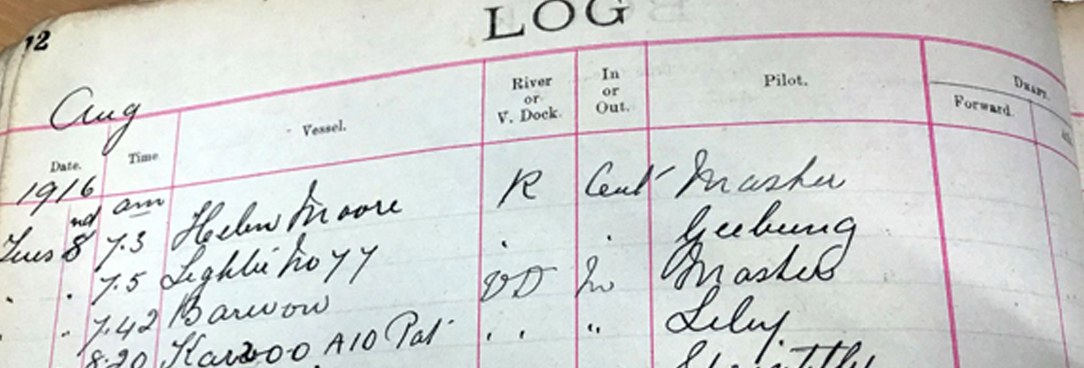 12
LOG
Aug
Date. Time Vessel. River or V. Dock. In or Out. Pilot. DRAFT. Forward.
1916 am
Tues 8 7.3 Helen Moore R Out Master
7.5 Lighter No 77 . . Geebung
7.42 Barwon VD In Master
8.20 Karoo A10 Pat . . " Lily